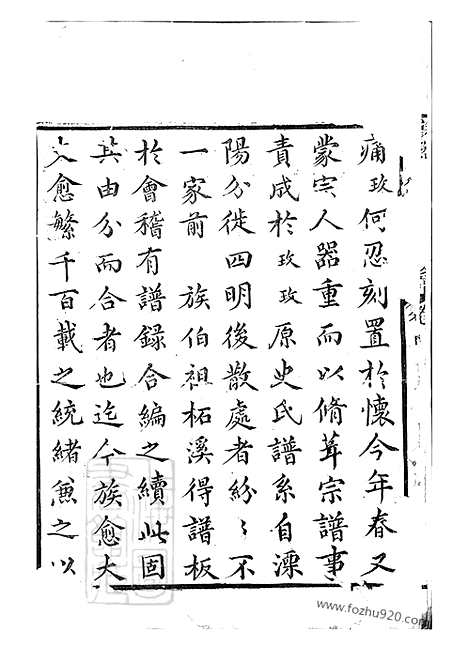 痛玫何忍刻置於懷今年春又
蒙宗人器重而以脩葺宗譜事
責成於玫玫原史氏譜系自溧
陽分徙四明後散處者紛〻不
一家前　族伯祖柘溪得譜板
於會稽有譜録合編之續此固
其由分而合者也迄今族愈大
文愈繁千百載之統緒兼之以
www.fozhu920.com